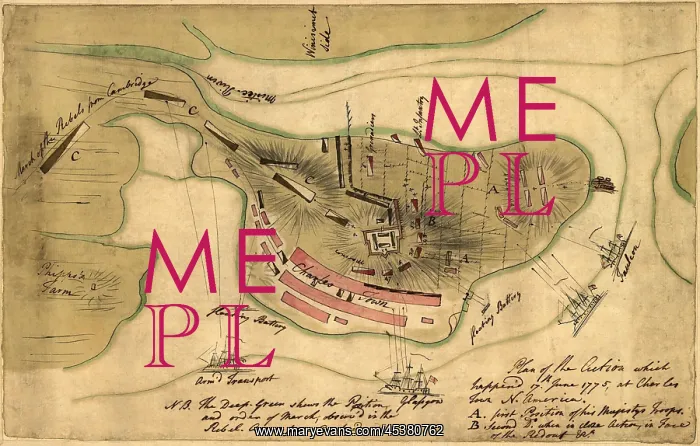 Winisimet
Side
Mistic River
March of the Rebels from Cambridge
C
C
C
C
Grenadiers
Lt. Infantry
ME
PL
A
B
A
Phipps's
Farm
ME
PL
Charles Town
Falcon
floating Battery
floating Battery
Arm'd Transport
Glasgow
Plan of the Action which
happend 17th June 1775, at Charles
Town N. America.
A. first Position of his Majestys Troops.
B Second Do. when in close Action, in Face
of the Redoubt &c.
N.B. The Deep Green shews the Position
and order of March, observ'd in the
Rebel
www.maryevans.com/45380762